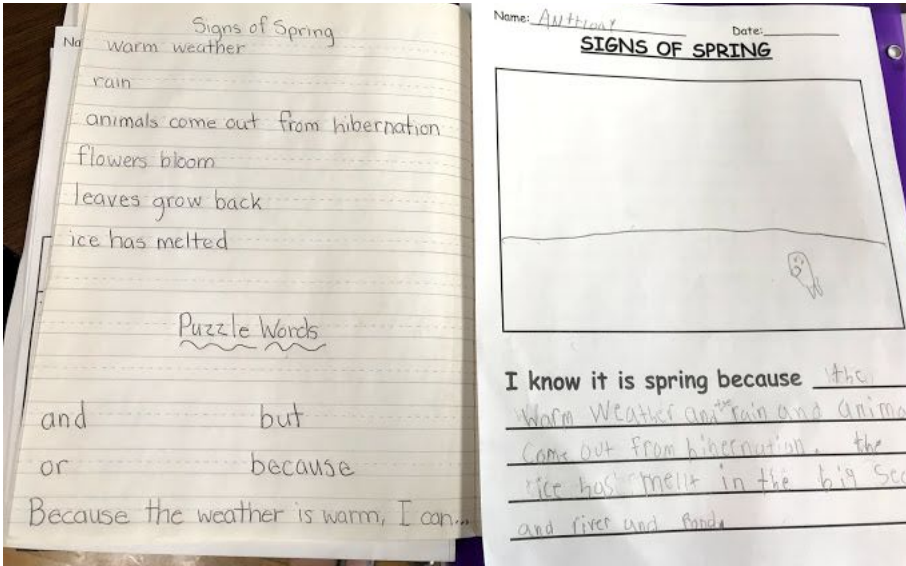 Na
Signs of Spring
warm weather
rain
animals come out from hibernation
flowers bloom
leaves grow back
ice has melted
Puzzle Words
and but
or because
Because the weather is warm, I can...
Name: Anthony
Date:
SIGNS OF SPRING
I know it is spring because the
warm weather and the rain and anima
come out from hibernation. the
ice has melt in the big
and river and